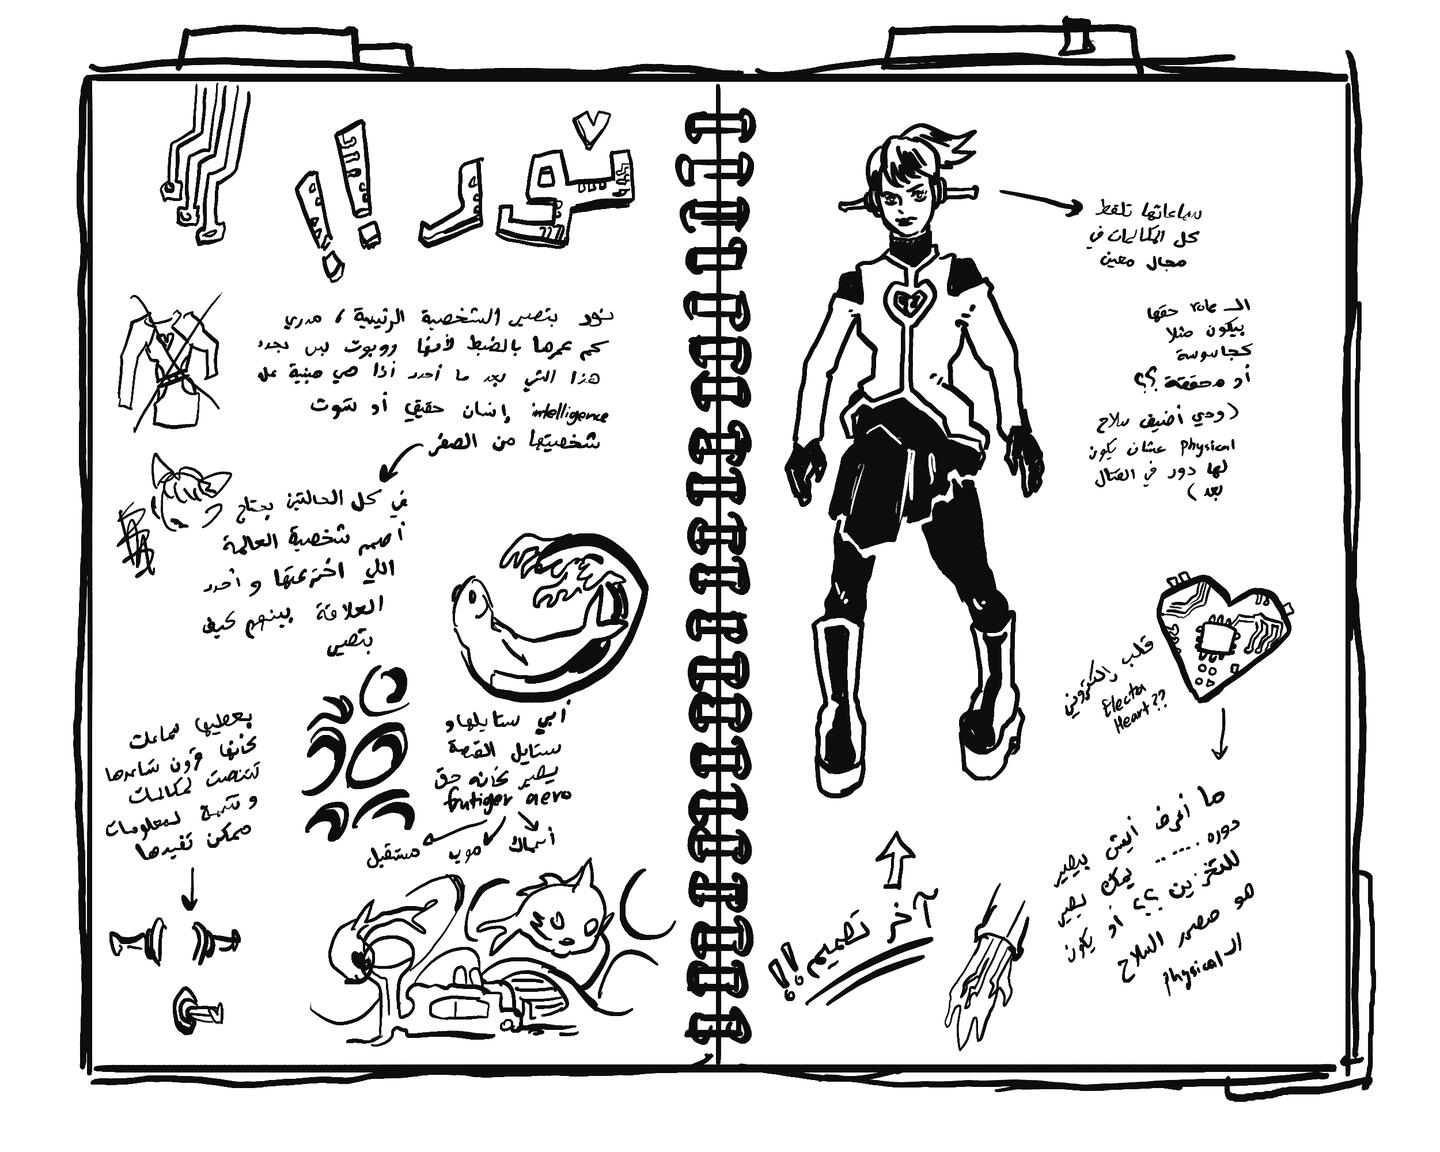 نور !!
نور بتصير الشخصية الرئيسية ، مدري
كم عمرها بالضبط لأنها روبوت بس بحدد
هذا الشي بعد ما أحدد أذا هي مبنية على
intelligence إنسان حقيقي أو سوت
شخصيتها من الصفر
في كل الحالتين بحتاج
أصمم شخصية العالمة
اللي اخترعتها و أحدد
العلاقة بينهم كيف
بتصير
أبي ستايلها و
ستايل القصة
يصير كأنه حق
frutiger aero
أسماك
موية
مستقبل
بعطيها سماعات
كأنها قرون تساعدها
تتنصت لمكالمات
و تنتبه لمعلومات
ممكن تفيدها
سماعاتها تلقط
كل المكالمات في
مجال معين
الـ role حقها
بيكون مثلا
كجاسوسة
أو محققة ؟؟
(ودي أضيف سلاح
physical عشان يكون
لها دور في القتال
بعد)
قلب إلكتروني
Electra
Heart??
ما أعرف أيش بيصير
دوره ...... يمكن يصير
للتخزين ؟؟ أو يكون
هو مصدر السلاح
الـ physical
آخر تصميم !!